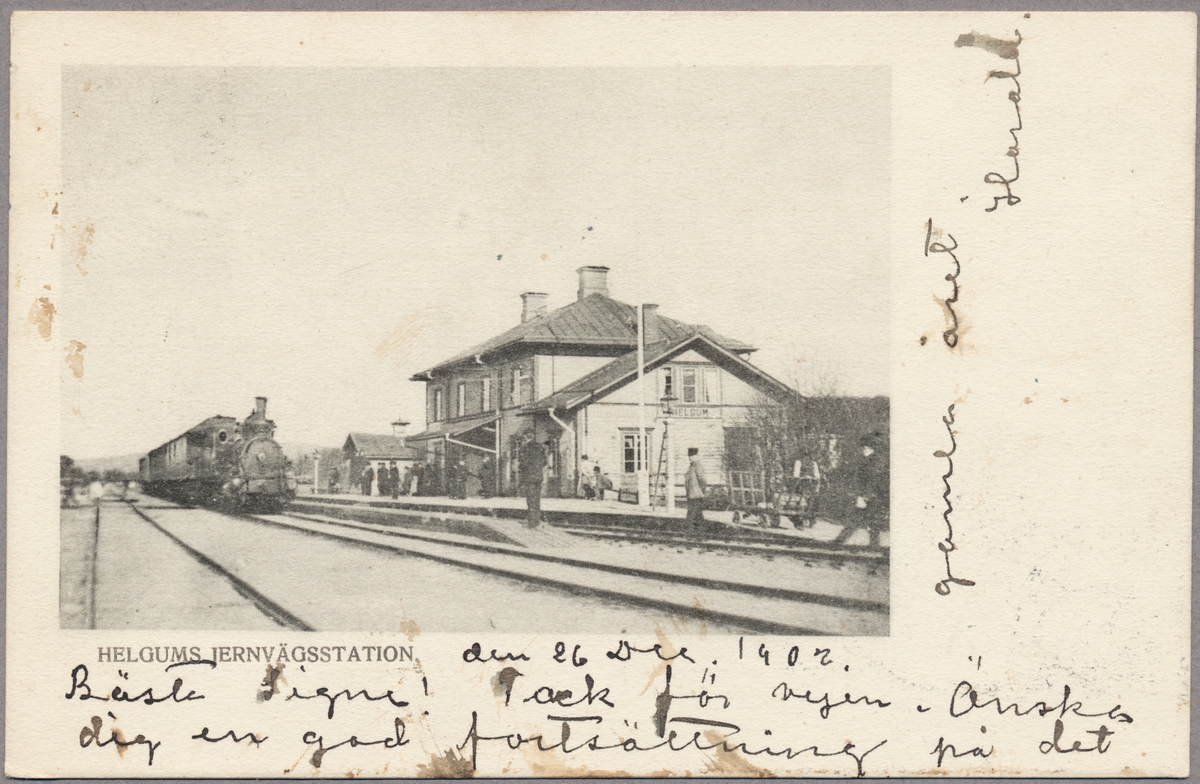 HELGUM
HELGUMS JERNVÄGSSTATION.
den 26 Dec. 1902.
Bäste Signe! Tack för vyen. Önskas
dig en god fortsättning på det
gamla året
Harald.